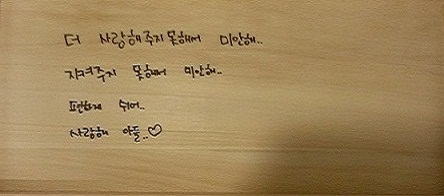 더 사랑해주지 못해서 미안해..
지켜주지 못해서 미안해..
편하게 쉬어..
사랑해 아들..♡